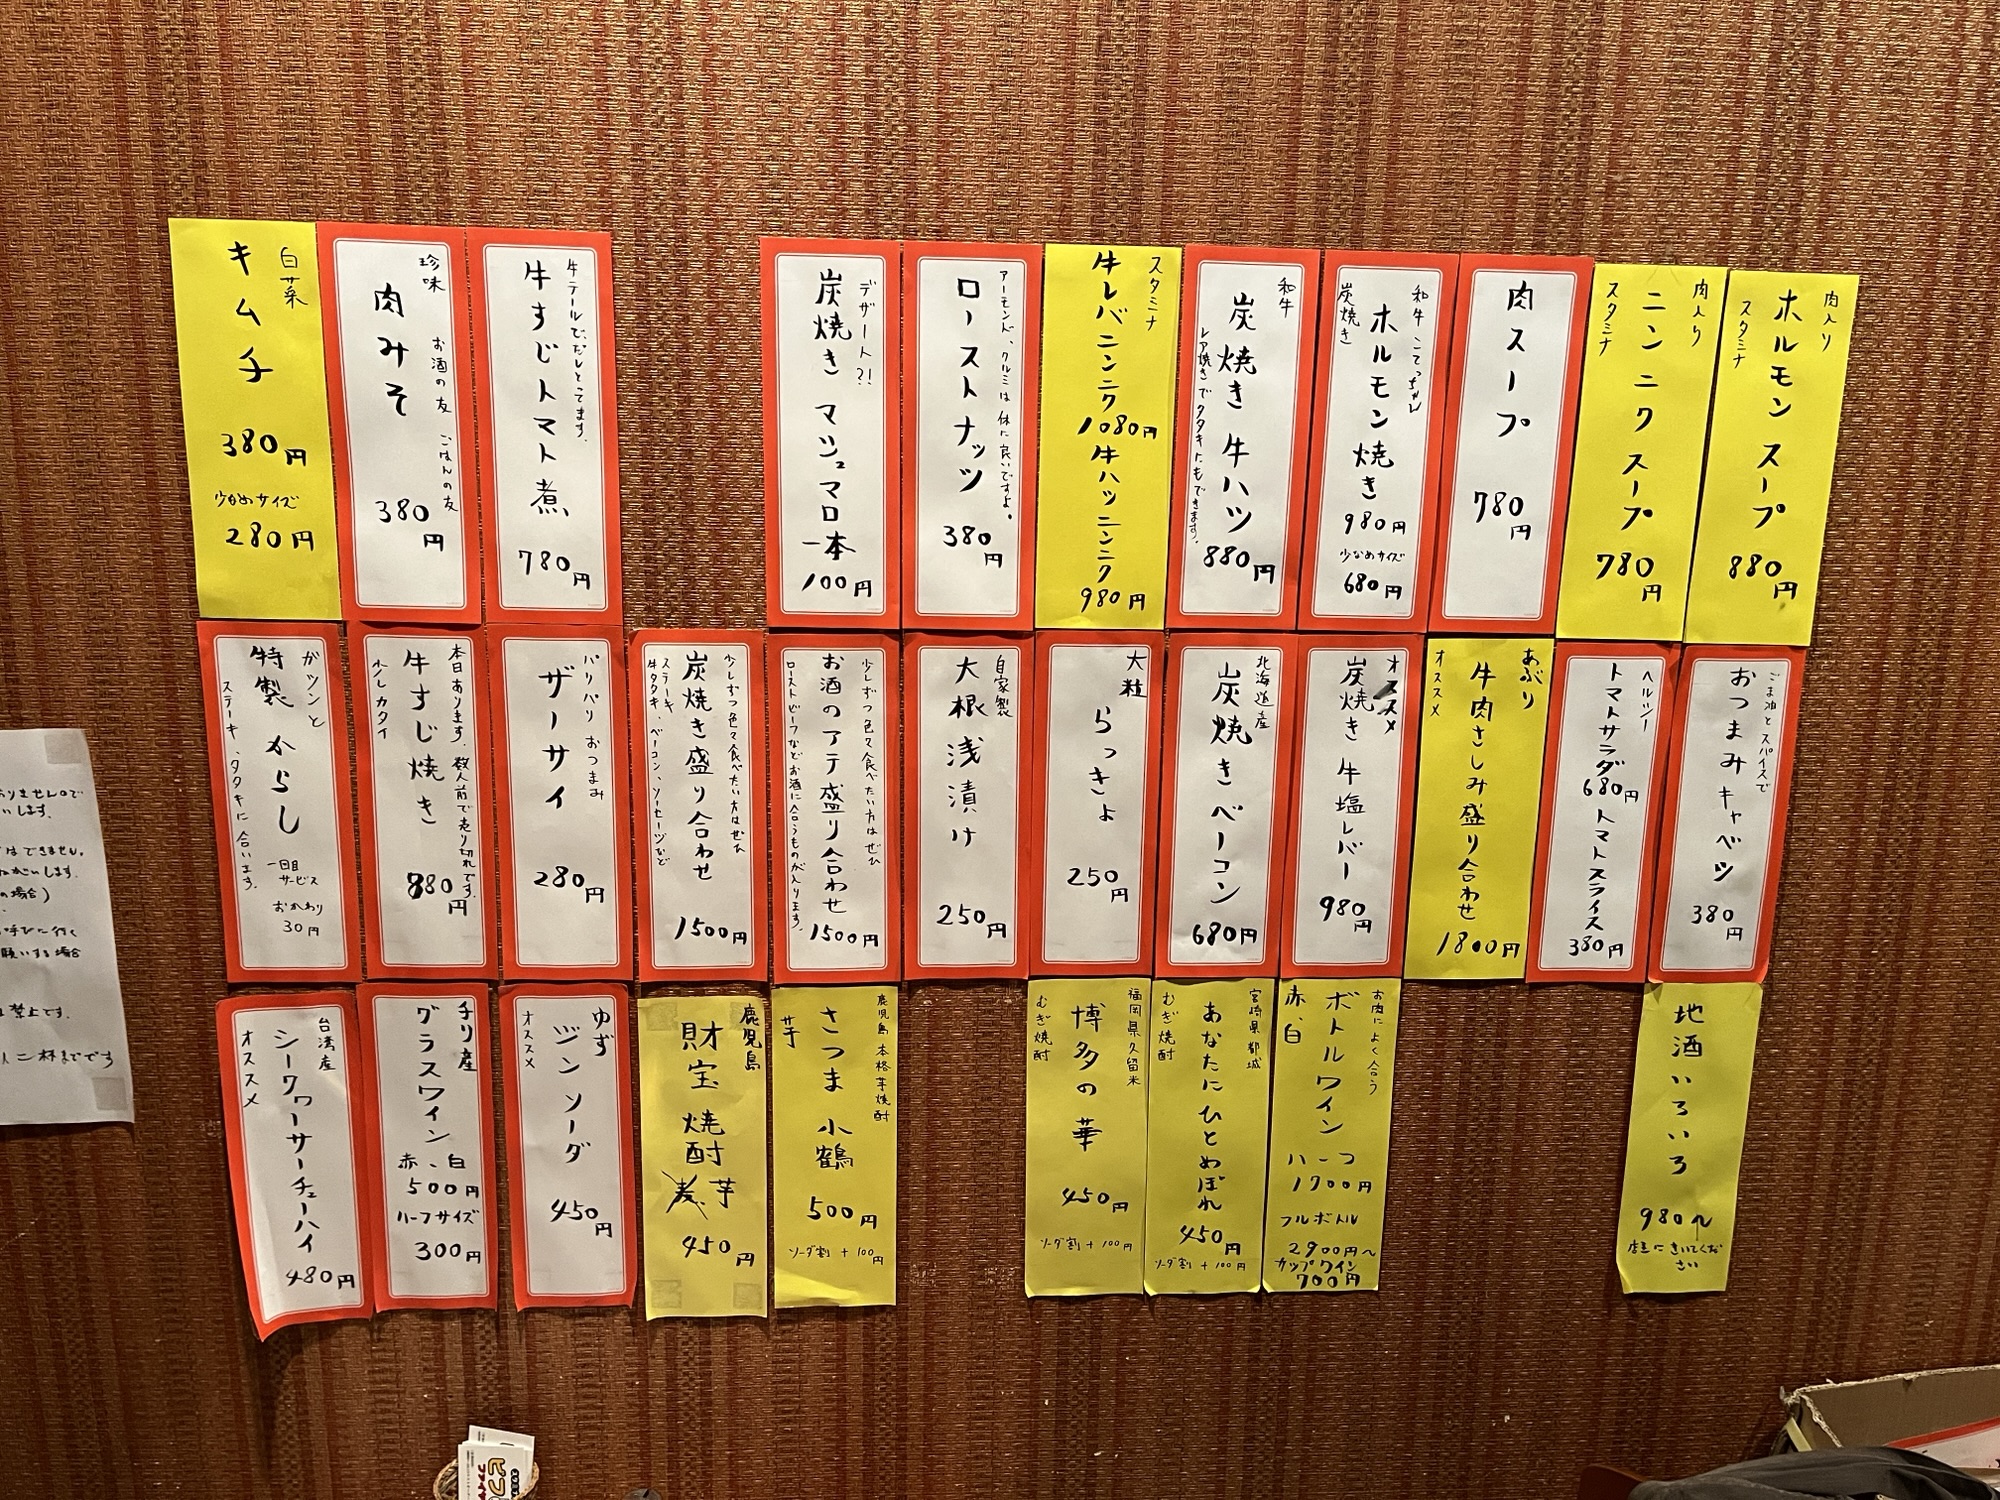 肉入り
ホルモンスープ
スタミナ
880円
肉入り
ニンニクスープ
スタミナ
780円
肉スープ
780円
和牛 こてっちゃん
ホルモン焼き
炭焼き
980円
少なめサイズ
680円
和牛
炭焼き 牛ハツ
レア焼きでタタキにもできます。
880円
スタミナ
牛レバニンニク
1080円
牛ハツニンニク
980円
アーモンド、クルミは体に良いですよ。
ローストナッツ
380円
デザート?!
炭焼き マシュマロ
一本
100円
牛テールでだしとってます。
牛すじトマト煮
780円
珍味
お酒の友 ごはんの友
肉みそ
380円
白菜
キムチ
380円
少なめサイズ
280円
ごま油とスパイスで
おつまみキャベツ
380円
ヘルシー
トマトサラダ
680円
トマトスライス
380円
あぶり
牛肉さしみ盛り合わせ
オススメ
1800円
オススメ
炭焼き 牛塩レバー
980円
北海道産
炭焼きベーコン
680円
大粒
らっきょ
250円
自家製
大根浅漬け
250円
少しずつ色々食べたい方はぜひ
お酒のアテ盛り合わせ
ローストビーフなどお酒に合うものが入ります。
1500円
少しずつ色々食べたい方はぜひ
炭焼き盛り合わせ
ステーキ、
牛タタキ、ベーコン、ソーセージなど
1500円
パリパリ おつまみ
ザーサイ
280円
本日あります。数人前で売り切れです。
牛すじ焼き
少しカタイ
880円
ガツンと
特製 からし
ステーキ、タタキに合います。
一日目
サービス
おかわり
30円
地酒いろいろ
980〜
店主にきいてくだ
さい
お肉によく合う
ボトルワイン
赤、白
ハーフ
1700円
フルボトル
2900円〜
カップワイン
700円
宮崎県都城
あなたにひとめぼれ
むぎ焼酎
450円
ソーダ割 + 100円
福岡県久留米
博多の華
むぎ焼酎
450円
ソーダ割 + 100円
鹿児島 本格芋焼酎
さつま小鶴
芋
500円
ソーダ割 + 100円
鹿児島
財宝 焼酎
麦 芋
450円
ゆず
ジンソーダ
オススメ
450円
チリ産
グラスワイン
赤、白
500円
ハーフサイズ
300円
台湾産
シークワーサーチューハイ
オススメ
480円
おりませんので
いします。
はできません。
ねがいします。
の場合)
呼びに行く
願いする場合
禁止です。
人二杯までです